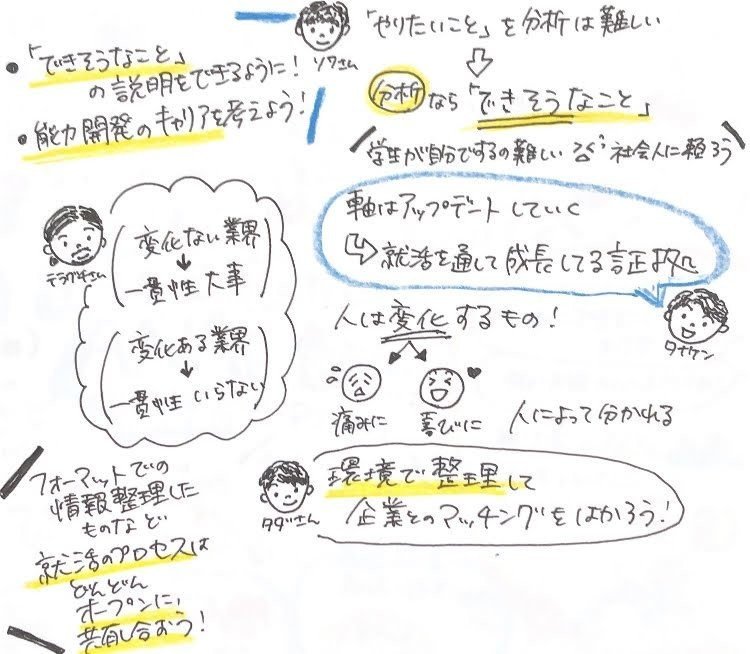 ・「できそうなこと」
の説明をできるように!
・能力開発のキャリアを考えよう!
ソワさん
「やりたいこと」を分析は難しい
⇩
分析なら「できそうなこと」
学生が自分でするの難しい
社会人に頼ろう
テラサキさん
変化ない業界
↓
一貫性大事
変化ある業界
↓
一貫性いらない
軸はアップデートしていく
↳就活を通して成長してる証拠
タナケン
人は変化するもの!
痛みに
喜びに
人によって分かれる
タダさん
環境で整理して
企業とのマッチングをはかろう!
フォーマットでの
情報整理した
ものなど
就活のプロセスは
どんどん
オープンに、
共有し合おう!